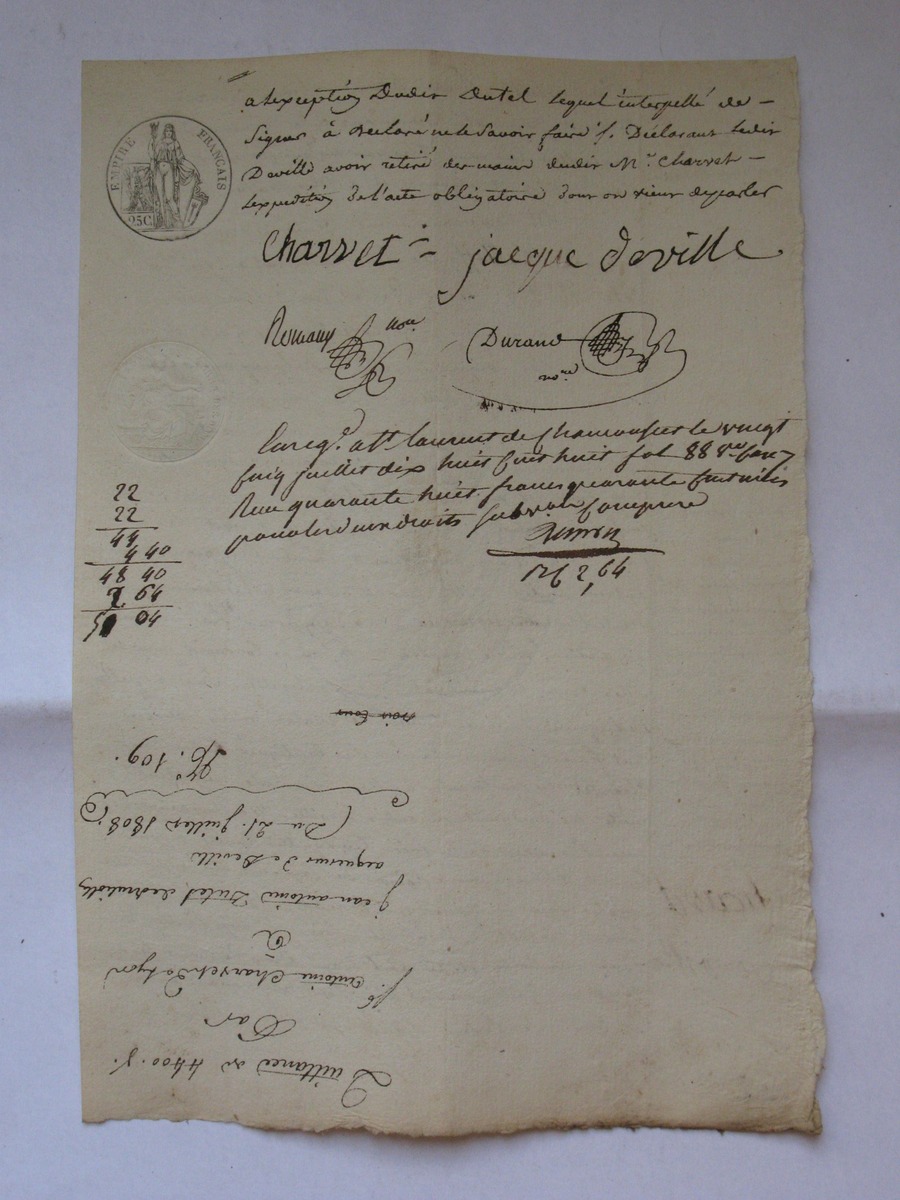 EMPIRE FRANÇAIS
25C
a lexception Dudit Dutel lequel interpellé de
Signer à declaré ne le savoir faire /. Déclarant ledit
Deville avoir retiré des mains dudit Mr. Charvet
lexpedition de l'acte obligatoire dont on vient de parler
Charvet jacque deville
Romany nore
Durand
nore
Enregé. a St laurent de Chamousset le vingt
cinq juillet dix huit cent huit fol 88
Reçu quarante huit francs quarante centimes
pour les droits subvon Comprise
2,64
22
22
44
4 40
48 40
2 64
51 04
Quittance de 4400 f.
Par
Sr. Antoine Charvet de Lyon
à
jean antoine Dutel
acquereur de Deville
(Du 21. juillet 1808.)
No. 109.